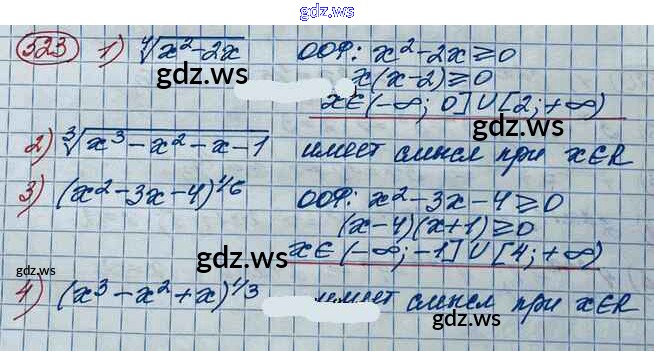 gdz.ws
523 1) ∜(x²-2x) ООФ: x²-2x⩾0
x(x-2)⩾0
gdz.ws
x∈(-∞; 0]∪[2;+∞)
gdz.ws
2) ∛(x³-x²-x-1) имеет смысл при x∈R
3) (x²-3x-4)^1/6 ООФ: x²-3x-4⩾0
(x-4)(x+1)⩾0
gdz.ws
x∈(-∞;-1]∪[4;+∞)
gdz.ws
4) (x³-x²+x)^1/3 имеет смысл при x∈R
gdz.ws